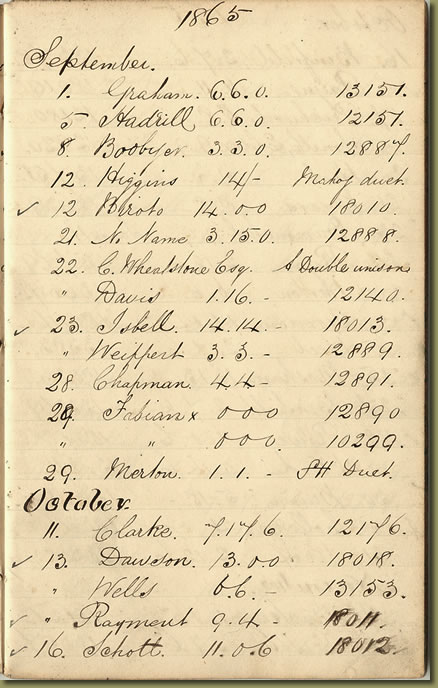 1865
September.
1. Graham. 6.6.0. 13151.
5. Hadrill 6.6.0. 12151.
8. Boobyer. 3.3.0. 12887.
12. Higgins 14/- Mahog duet.
✓ 12 Biroto 14.0.0 18010.
21. No Name 3.15.0. 12888.
22. C. Wheatstone Esq. A Double unison
" Davis 1.16. - 12140.
✓ 23. Isbell. 14.14. - 18013.
" Weippert 3.3. - 12889.
28. Chapman. 4.4 - 12891.
28. Fabian x 0 0 0 12890
" " 0 0 0. 10299.
29. Merton. 1.1. - SH Duet.
October.
11. Clarke. 7.17.6. 12176.
✓ 13. Dawson. 13.0.0 18018.
" Wells 0.6. - 13153.
✓ " Rayment 9.4 - 18011.
✓ 16. Schott. 11.0.6 18012.